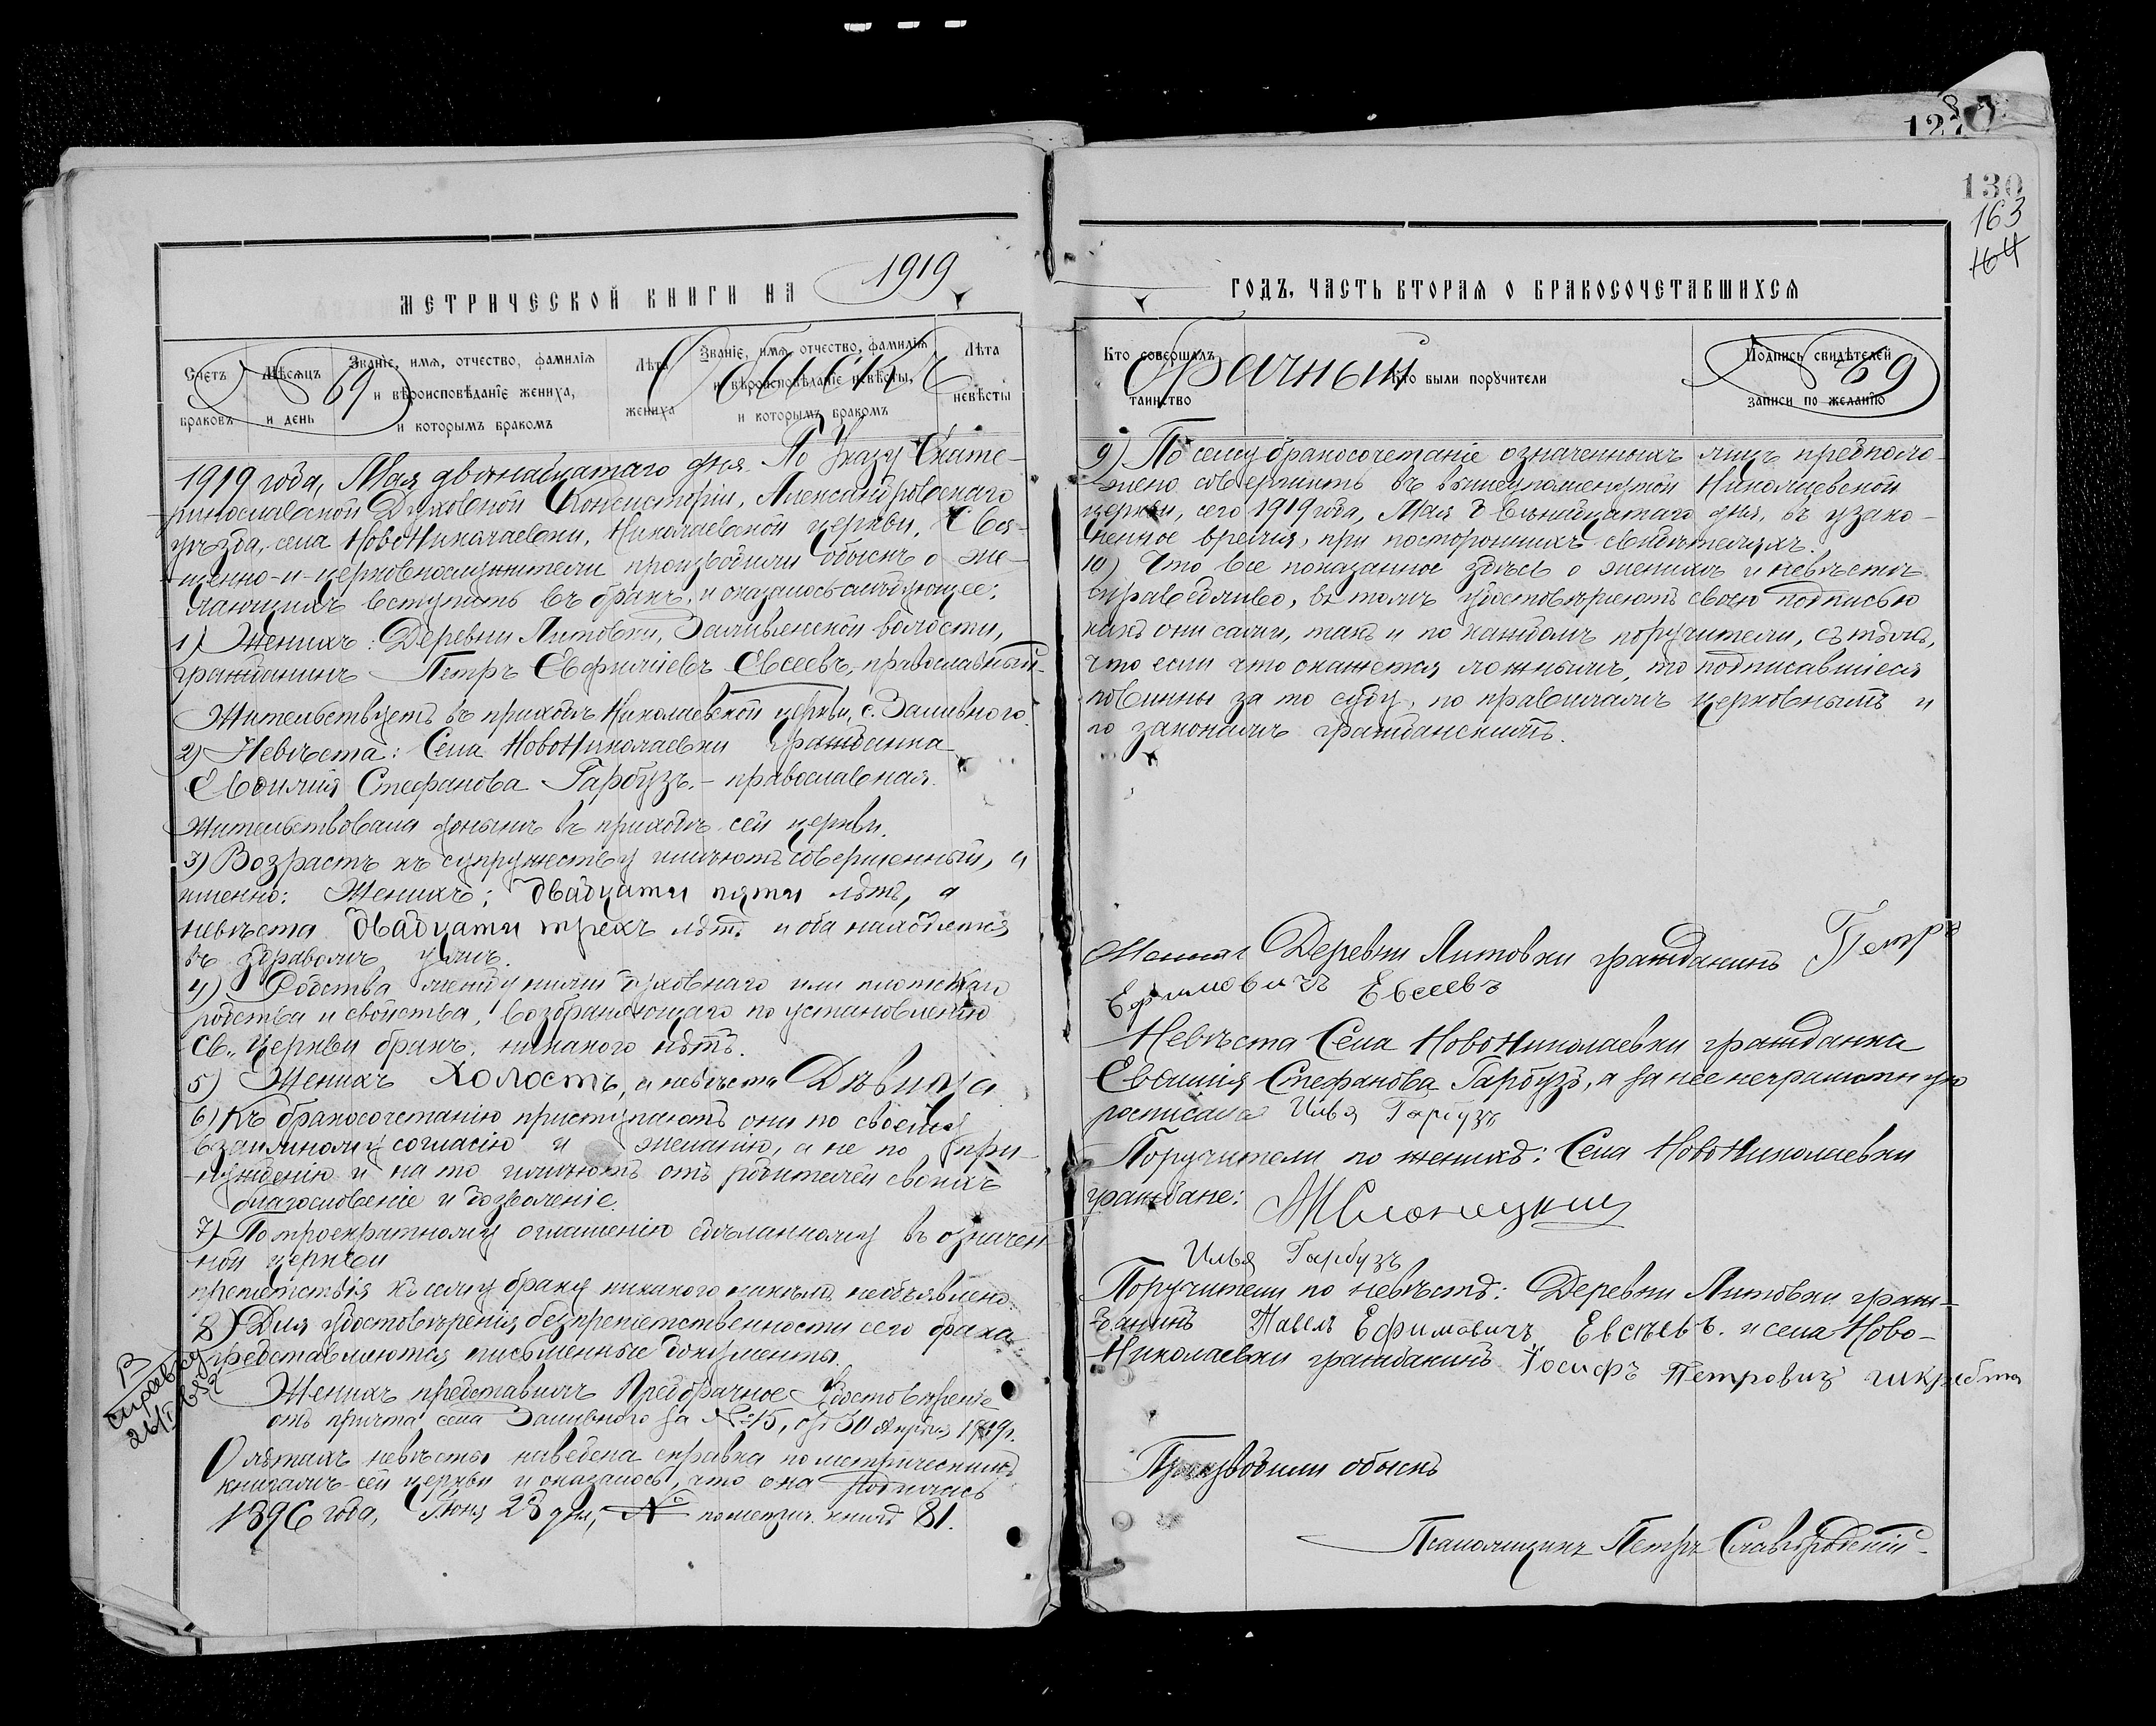 1278
130
163
164
МЕТРИЧЕСКОЙ КНИГИ НА 1919
Счетъ браковъ
Мѣсяцъ и день
Званіе, имя, отчество, фамилія и вѣроисповѣданіе жениха, и которымъ бракомъ
Лѣта жениха
Званіе, имя, отчество, фамилія и вѣроисповѣданіе невѣсты, и которымъ бракомъ
Лѣта невѣсты
69
Обыскъ
1919 года, Мая двѣнайцатаго дня. По Указу Екате-
ринославской Духовной Консисторіи, Александровскаго
уѣзда, села НовоНиколаевки, Николаевской церкви, Свя-
щенно-и-церковнослужители производили обыскъ о же-
лающихъ вступить въ бракъ, и оказалось слѣдующее:
1) Женихъ: Деревни Литовки, Заливянской волости,
гражданинъ Петръ Евфиміевъ Евсеевъ, православный
Жительствуетъ въ приходѣ Николаевской церкви, с. Заливного.
2) Невѣста: Села НовоНиколаевки гражданка
Евдимія Стефанова Гарбузъ. - православная.
Жительствовала донынѣ въ приходѣ сей церкви.
3) Возрастъ къ супружеству имѣютъ совершенный, и
именно: Женихъ; двадцати пяти лѣтъ, а
невѣста двадцати трехъ лѣтъ и оба находятся
въ здравомъ умѣ.
4) Родства между ними духовнаго или плотскаго
родства и свойства, возбраняющаго по установленію
Св. Церкви бракъ, никакого нѣтъ.
5) Женихъ Холостъ, а невѣста Дѣвица
6) Къ бракосочетанію приступаютъ они по своему
взаимному согласію и желанію, а не по при-
нужденію и на то имѣютъ отъ родителей своихъ
благословеніе и дозволеніе.
7) По троекратному оглашенію сдѣланному въ означен-
ной церкви
препятствія къ сему браку никакого никѣмъ необъявлено.
8) Для удостовѣренія безпрепятственности сего брака
представляются письменные документы.
Женихъ представилъ Предбрачное Удостовѣреніе
отъ причта села Заливного за №15, отъ 30 Апрѣля 1919г.
О лѣтахъ невѣсты наведена справка по метрическимъ
книгамъ сей церкви и оказалось, что она родилась
1896 года, Іюня 23 дня, № по метрич. книгѣ 81.
В справку
ГОДЪ, ЧАСТЬ ВТОРАЯ О БРАКОСОЧЕТАВШИХСЯ
Кто совершалъ таинство
Кто были поручители
Подпись свидѣтелей записи по желанію
Брачный
69
9) По сему бракосочетаніе означенныхъ лицъ предполо-
жено совершить въ вышеупомянутой Николаевской
церкви, сего 1919 года, Мая двѣнайцатаго дня, въ узако-
ненное время, при постороннихъ свидѣтеляхъ.
10) Что все показанное здѣсь о женихѣ и невѣстѣ
справедливо, въ томъ удостовѣряютъ своею подписью
какъ они сами, такъ и по каждомъ поручители, съ тѣмъ,
что если что окажется ложнымъ, то подписавшіеся
повинны за то суду, по правиламъ церковнымъ и
по законамъ гражданскимъ.
Женихъ Деревни Литовки гражданинъ Петръ
Ефимовичъ Евсеевъ
Невѣста Села НовоНиколаевки гражданка
Евдимія Стефанова Гарбузъ, а за нее неграмотную
росписался Илья Гарбузъ
Поручители по женихѣ: Села НовоНиколаевки
граждане:
Илья Гарбузъ
Поручители по невѣстѣ: Деревни Литовки граж-
данинъ Павелъ Ефимовичъ Евсѣевъ. и села Ново-
Николаевки гражданинъ Іосифъ Петровичъ
Производили обыскъ
Псаломщикъ Петръ Славгородскій